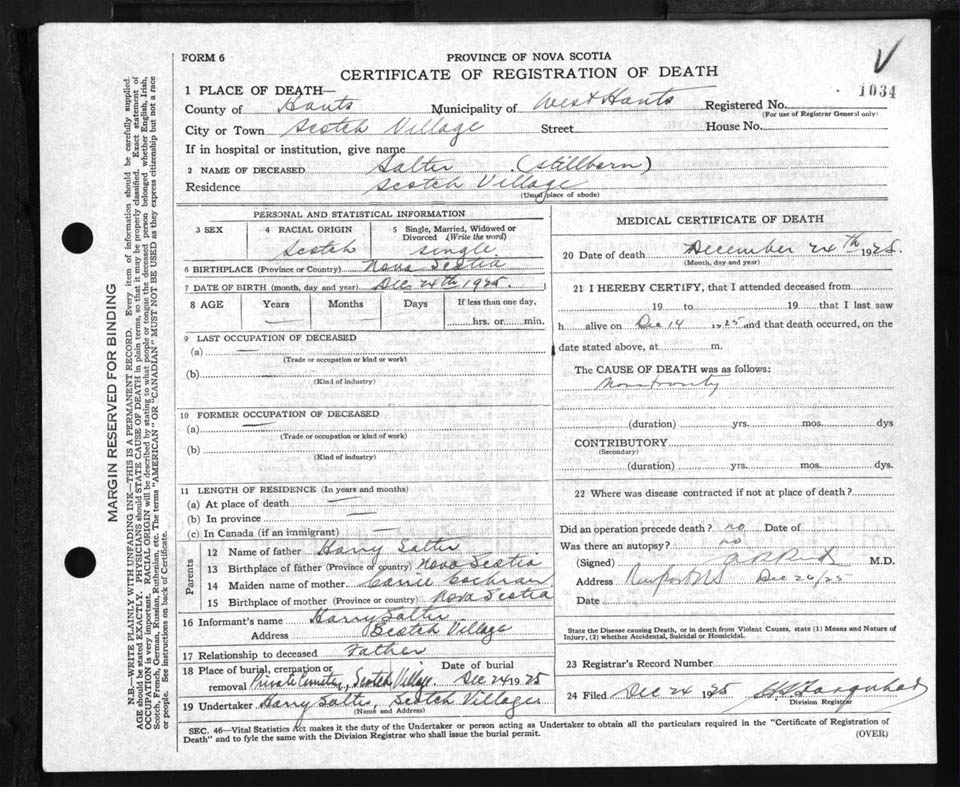 FORM 6
PROVINCE OF NOVA SCOTIA
CERTIFICATE OF REGISTRATION OF DEATH
1034
1 PLACE OF DEATH—
County of Hants Municipality of West Hants Registered No.
(For use of Registrar General only)
City or Town Scotch Village Street House No.
If in hospital or institution, give name
2 NAME OF DECEASED Salter (Stillborn)
Residence Scotch Village
(Usual place of abode)
PERSONAL AND STATISTICAL INFORMATION
3 SEX
4 RACIAL ORIGIN
Scotch
5 Single, Married, Widowed or Divorced (Write the word)
single
6 BIRTHPLACE (Province or Country) Nova Scotia
7 DATE OF BIRTH (month, day and year) Dec. 24th 1925.
8 AGE Years Months Days If less than one day,
hrs. or min.
9 LAST OCCUPATION OF DECEASED
(a) —
(Trade or occupation or kind or work)
(b)
(Kind of industry)
10 FORMER OCCUPATION OF DECEASED
(a) —
(Trade or occupation or kind of work)
(b)
(Kind of industry)
11 LENGTH OF RESIDENCE (In years and months)
(a) At place of death —
(b) In province —
(c) In Canada (if an immigrant) —
Parents
12 Name of father Harry Salter
13 Birthplace of father (Province or country) Nova Scotia
14 Maiden name of mother Carrie Cochran
15 Birthplace of mother (Province or country) Nova Scotia
16 Informant's name Harry Salter
Address Scotch Village
17 Relationship to deceased Father
18 Place of burial, cremation or Date of burial
removal Private Cemetery, Scotch Village. Dec 24 1925
19 Undertaker Harry Salter, Scotch Village
(Name and Address)
MEDICAL CERTIFICATE OF DEATH
20 Date of death December 24th 1925.
(Month, day and year)
21 I HEREBY CERTIFY, that I attended deceased from
19 to 19 that I last saw
h alive on Dec 14 1925 and that death occurred, on the
date stated above, at m.
The CAUSE OF DEATH was as follows:
(duration) yrs. mos. dys
CONTRIBUTORY
(Secondary)
(duration) yrs. mos. dys.
22 Where was disease contracted if not at place of death?
Did an operation precede death? no Date of
Was there an autopsy? no
(Signed) M.D.
Address Dec 26/25
Date
State the Disease causing Death, or in death from Violent Causes, state (1) Means and Nature of
Injury, (2) whether Accidental, Suicidal or Homicidal.
23 Registrar's Record Number
24 Filed Dec 24 1925
Division Registrar
SEC. 46—Vital Statistics Act makes it the duty of the Undertaker or person acting as Undertaker to obtain all the particulars required in the "Certificate of Registration of
Death" and to fyle the same with the Division Registrar who shall issue the burial permit.
(OVER)
MARGIN RESERVED FOR BINDING
N.B.—WRITE PLAINLY WITH UNFADING INK—THIS IS A PERMANENT RECORD. Every item of information should be carefully supplied.
AGE should be stated EXACTLY. PHYSICIANS should STATE CAUSE OF DEATH in plain terms, so that it may be properly classified. Exact statement of
OCCUPATION is very important. RACIAL ORIGIN will be described by stating to what people or tongue the deceased person belonged whether English, Irish,
Scotch, French, German, Russian, Ruthenian, etc. The terms "AMERICAN" OR "CANADIAN" MUST NOT BE USED as they express citizenship but not a race
or people. See instructions on back of Certificate.